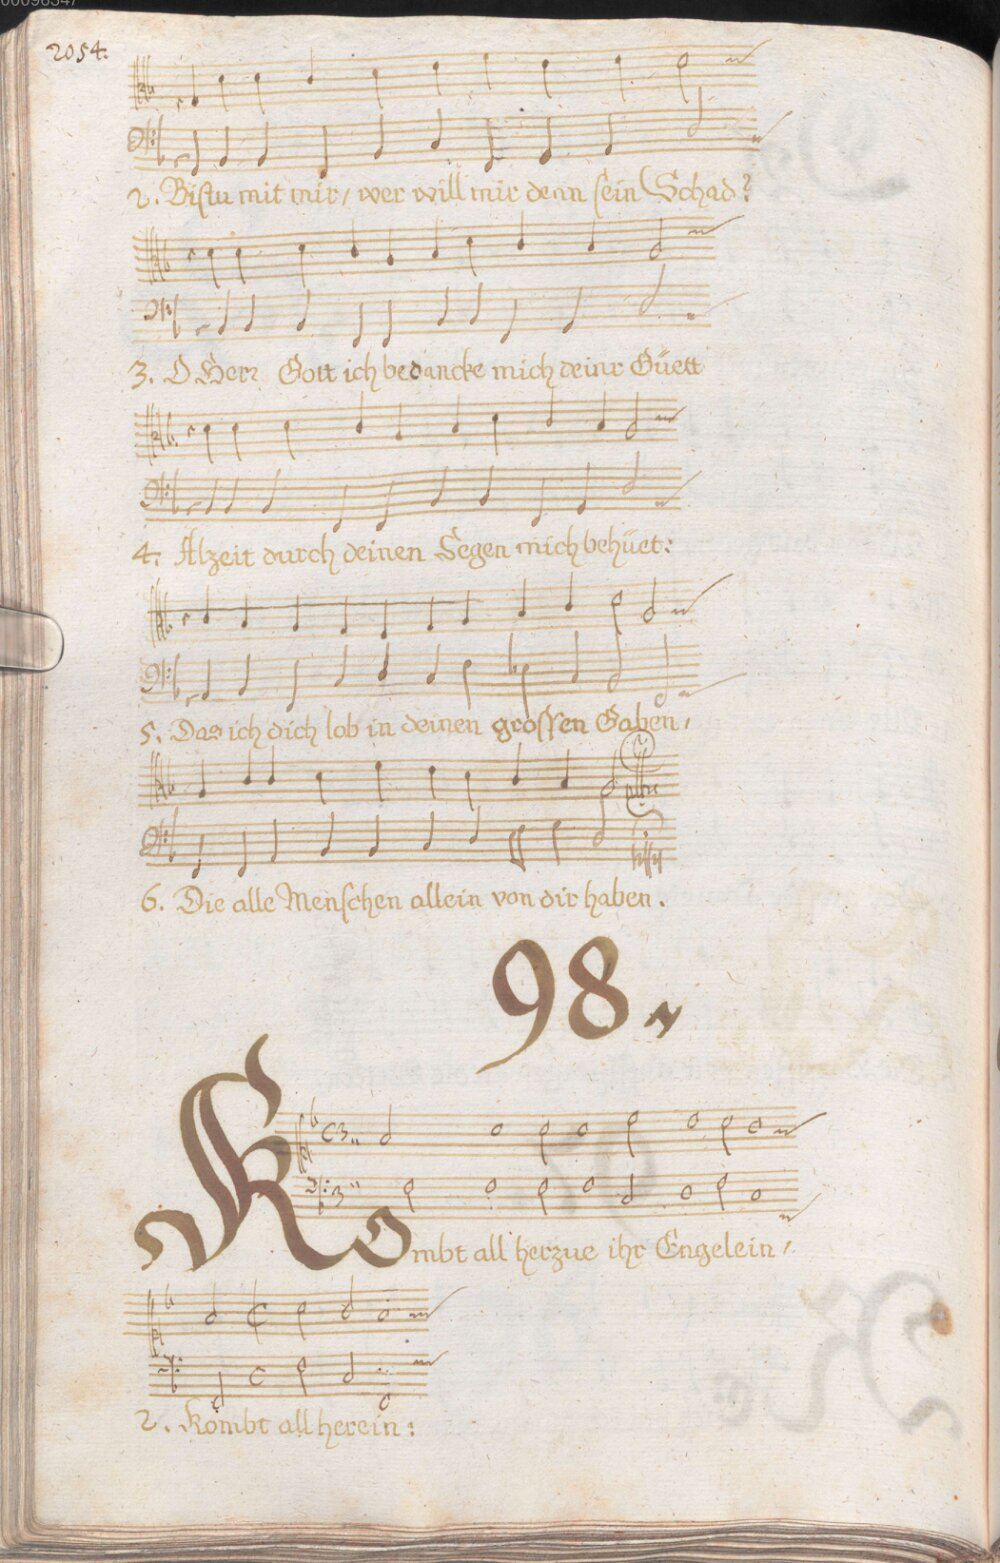 2054.
2. Bistu mit mir / wer will mir denn sein Schad?
3. O Herr Gott ich bedancke mich deinr Güett
4. Alzeit durch deinen Segen mich behüet:
5. Das ich dich lob in deinen grossen Gaben /
6. Die alle Menschen allein von dir haben.
98.
Kombt all herzue ihr Engelein /
2. Kombt all herein: